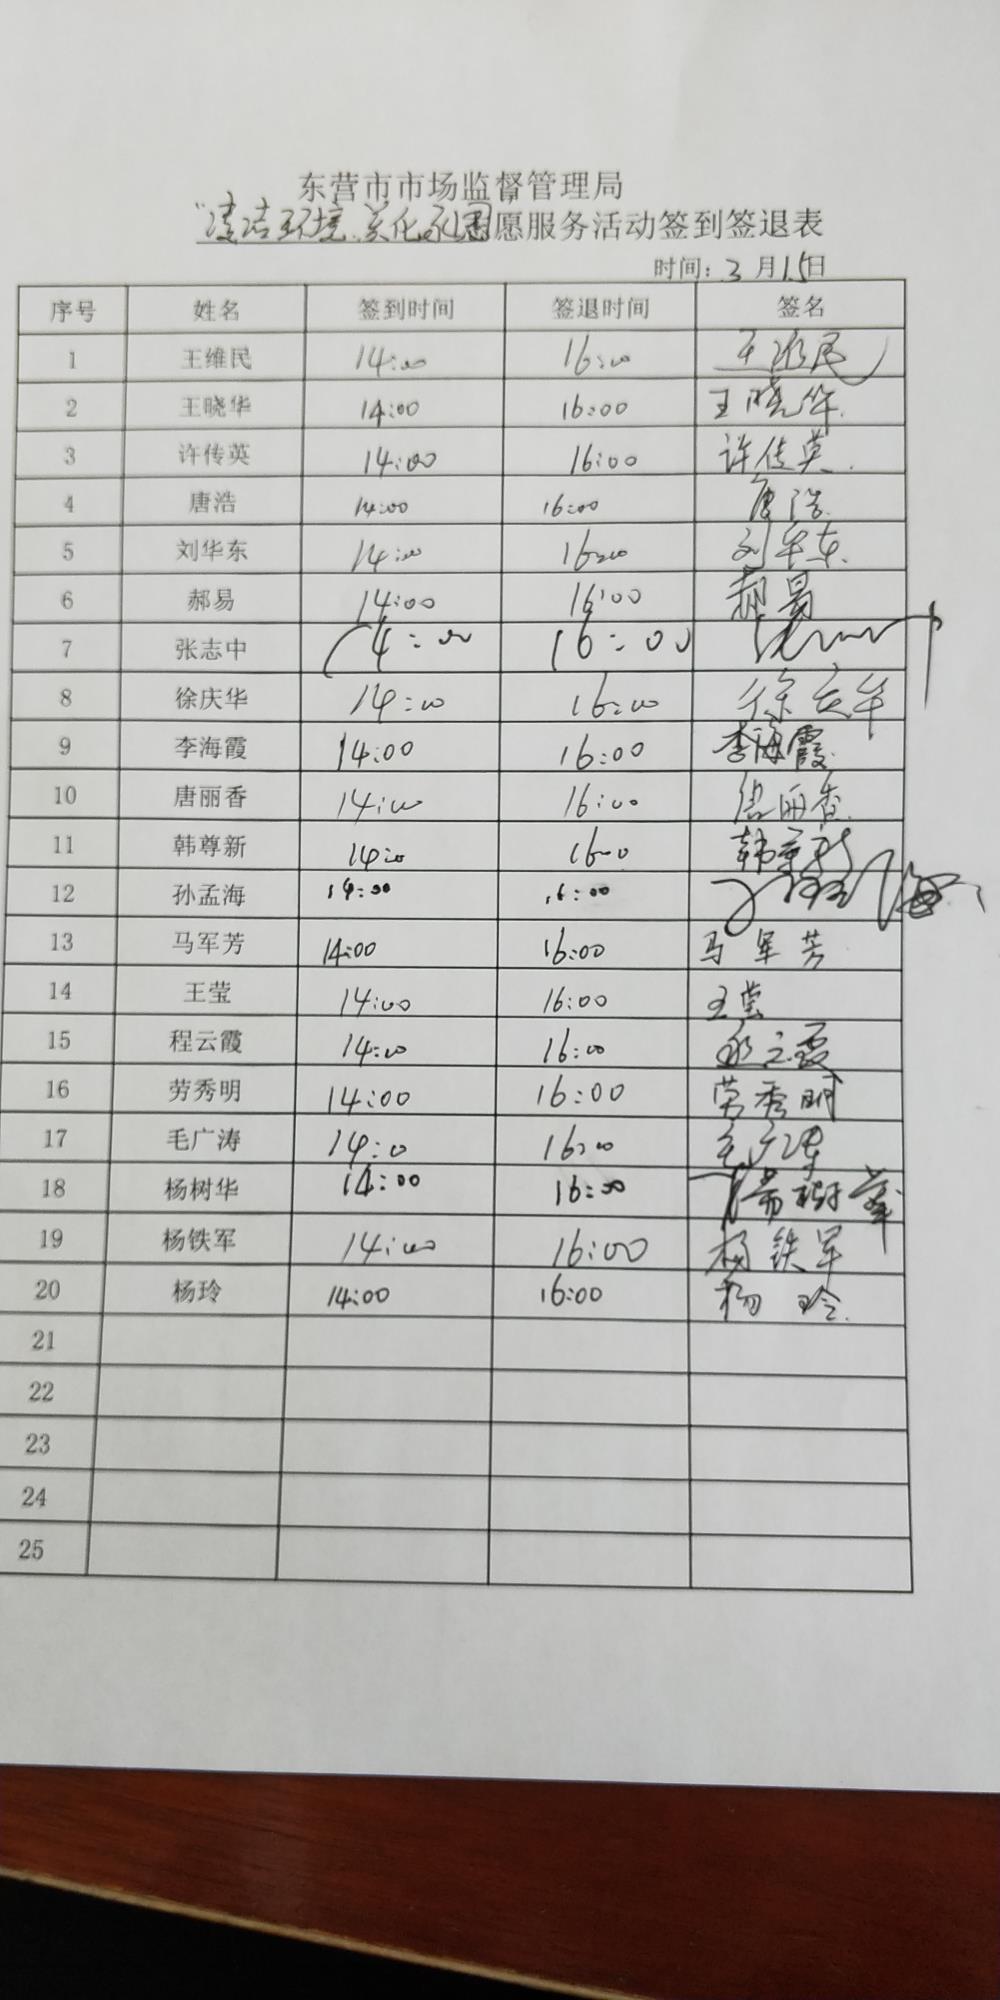 东营市市场监督管理局
"清洁环境、美化家园愿服务活动签到签退表
时间: 3 月 15日
序号 姓名 签到时间 签退时间 签名
1 王维民 14:00 16:00 王维民
2 王晓华 14:00 16:00 王晓华
3 许传英 14:00 16:00 许传英
4 唐浩 14:00 16:00 唐浩
5 刘华东 14:00 16:00 刘华东
6 郝易 14:00 16:00 郝易
7 张志中 14:00 16:00
8 徐庆华 14:00 16:00 徐庆华
9 李海霞 14:00 16:00 李海霞
10 唐丽香 14:00 16:00 唐丽香
11 韩尊新 14:00 16:00 韩尊新
12 孙孟海 14:00 16:00 孙孟海
13 马军芳 14:00 16:00 马军芳
14 王莹 14:00 16:00 王莹
15 程云霞 14:00 16:00 程云霞
16 劳秀明 14:00 16:00 劳秀明
17 毛广涛 14:00 16:00 毛广涛
18 杨树华 14:00 16:00 杨树華
19 杨铁军 14:00 16:00 杨铁军
20 杨玲 14:00 16:00 杨玲
21
22
23
24
25